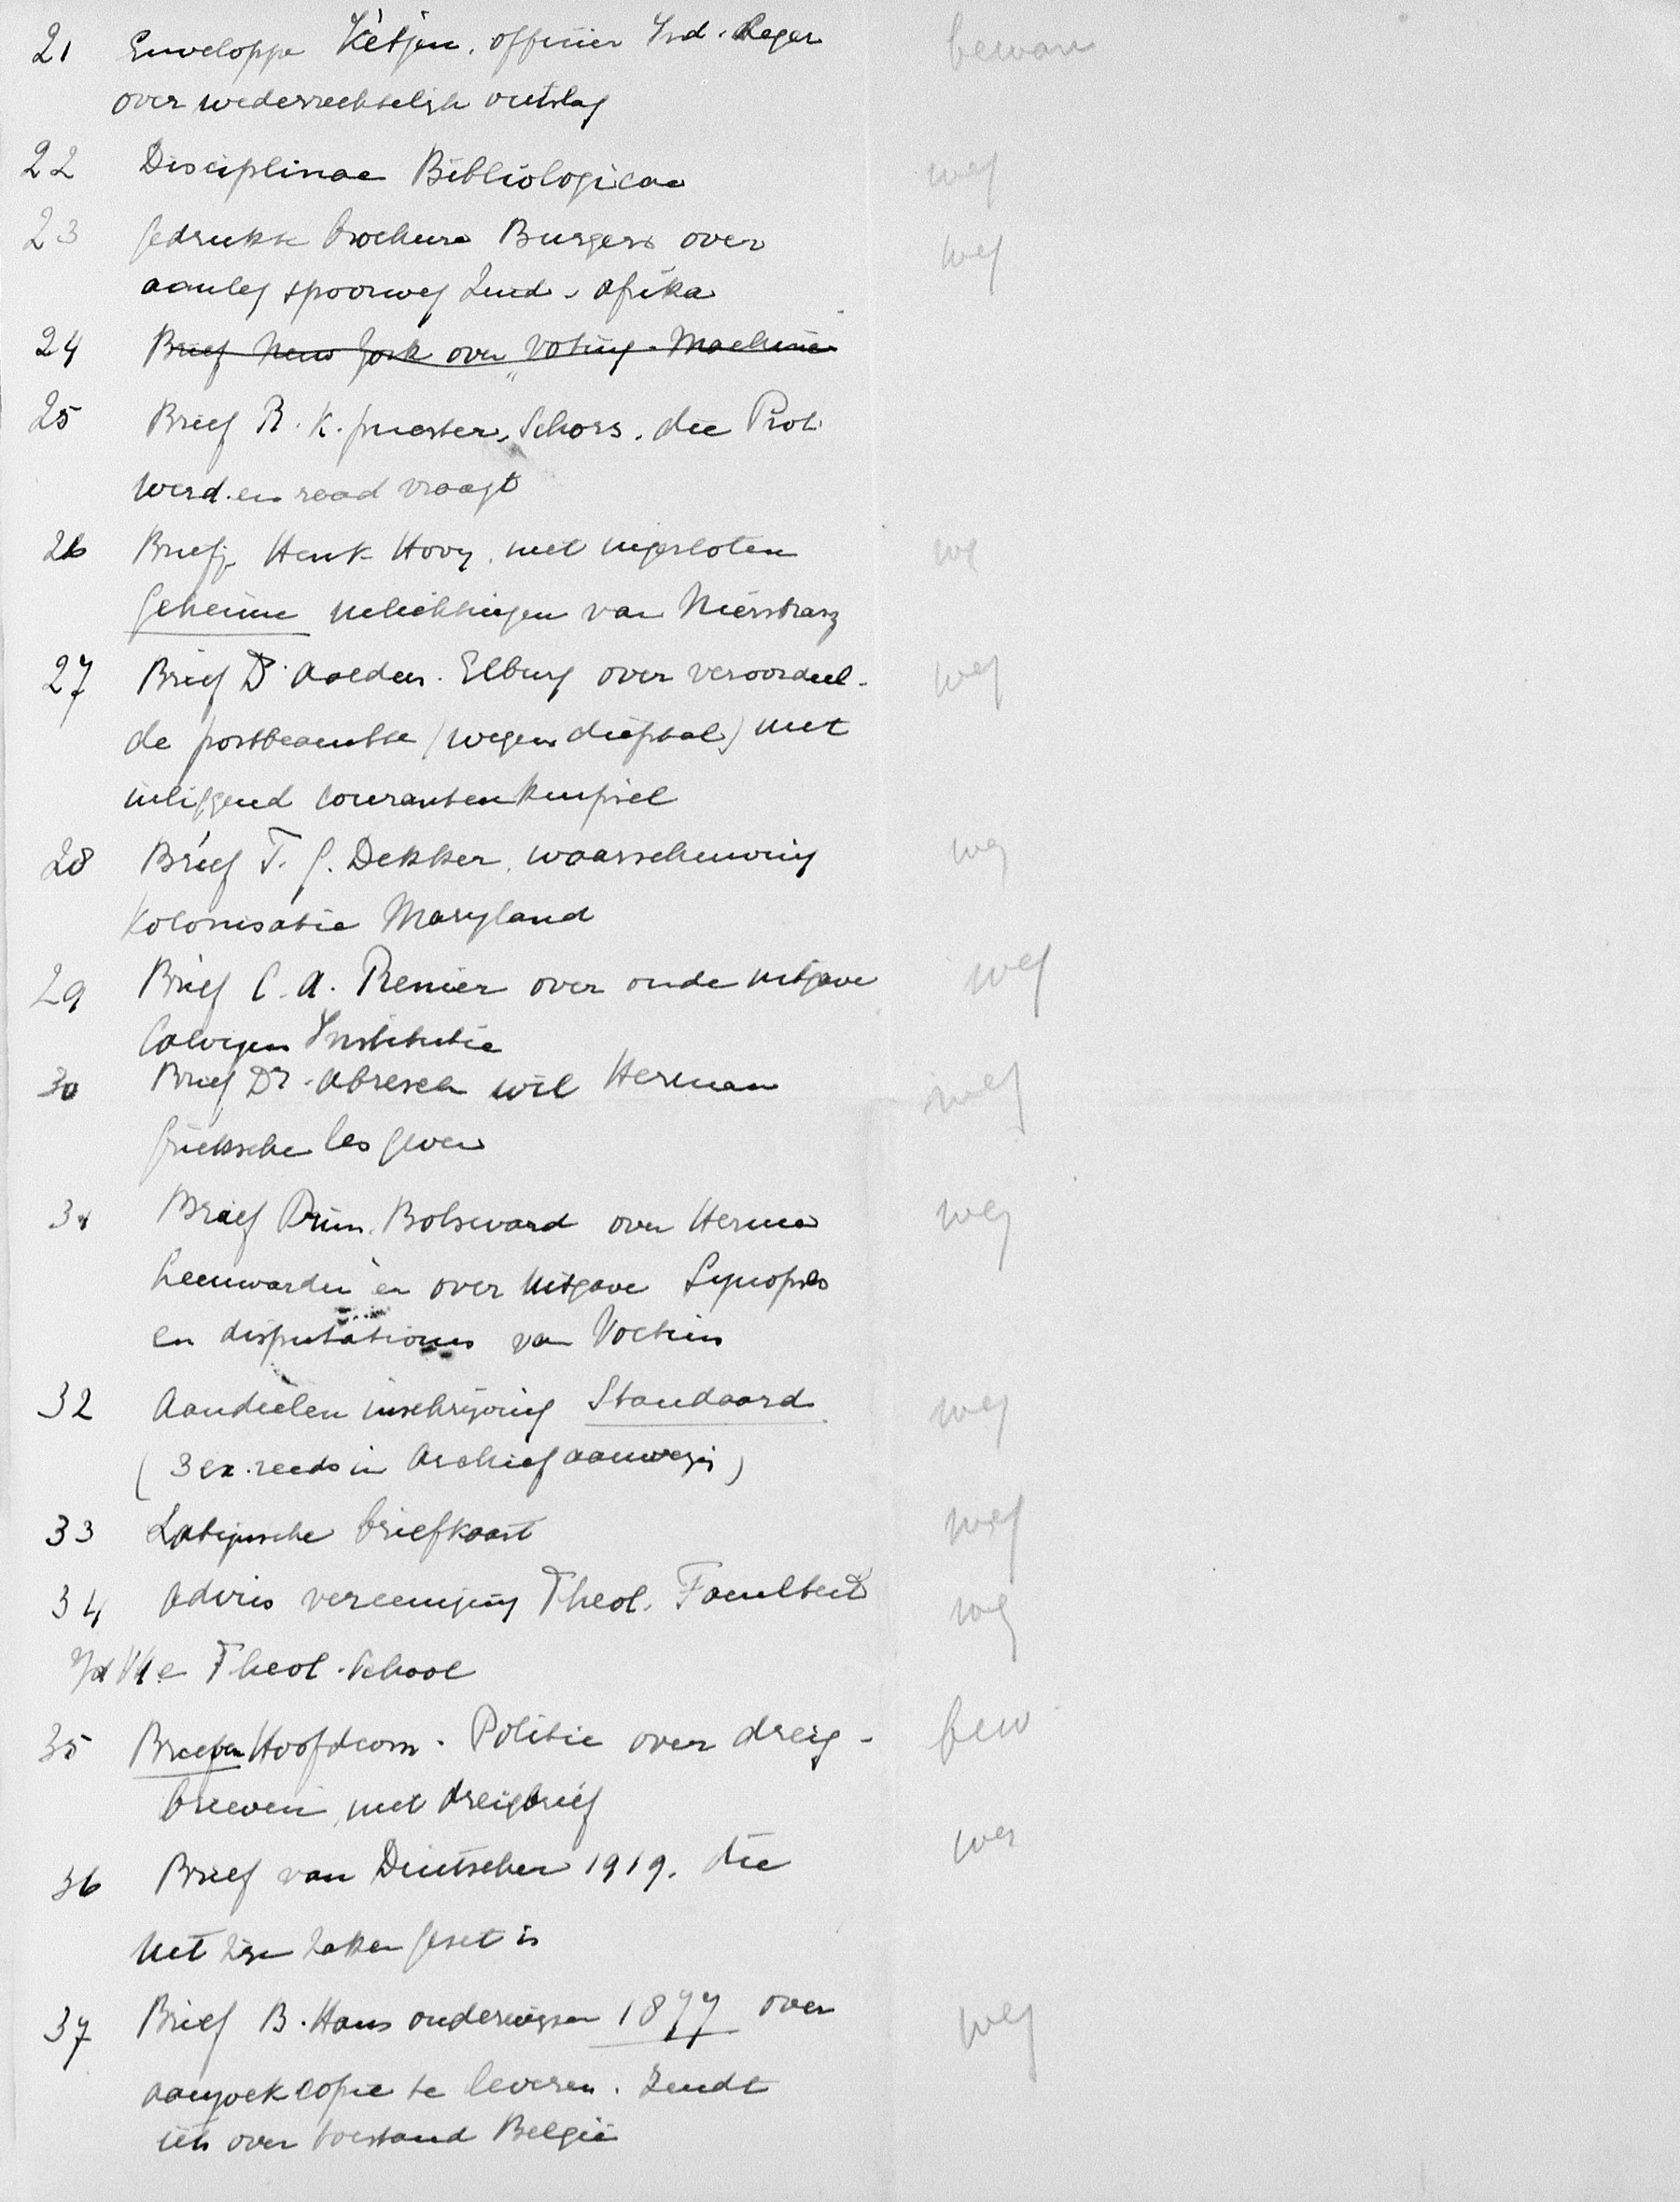 21 Enveloppe Kètjen, officier Ind. Leger bewaren
over wederrechtelijk ontslag
22 Disciplinae Bibliologicae weg
23 Gedrukte brochure Burgers over weg
aanleg spoorweg Zuid-Afrika
24 Brief New York over "Voting-Machine
25 Brief R. K. priester, Schors, die Prot.
werd en raad vraagt
26 Briefje Henk Hovy, met ingesloten weg
Geheime inlichtingen van Nierstrasz
27 Brief Ds. Aalders. Elburg over veroordeel- weg
de postbeambte (wegens diefstal) met
inliggend courantenknipsel
28 Brief T. G. Dekker, waarschuwing weg
Kolonisatie Maryland
29 Brief C. A. Renier over oude uitgave weg
Calvijns Institutie
30 Brief Dr. Abresch wil Herman weg
Grieksche les geven
31 Brief Prins. Bolsward over Herman weg
Leeuwarden en over uitgave Synopsis
en disputationes van Voetius
32 Aandeelen inschrijving Standaard weg
(3 ex. reeds in Archief aanwezig)
33 Latijnsche briefkaart weg
34 Advies vereeniging Theol. Faculteit weg
Theol. School
35 Brief van Hoofdcom. Politie over dreig- bew
brieven, met dreigbrief
36 Brief van Duitscher 1919, die weg
uit zijn zaken gezet is
37 Brief B. Hans onderwijzer 1877 over weg
aanzoek copie te leveren. Zendt
iets over toestand België